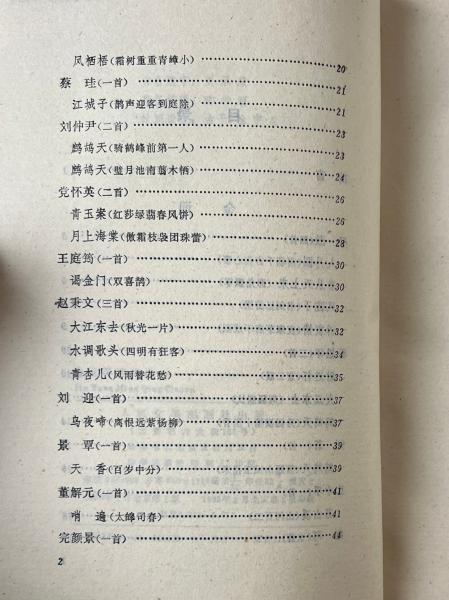 凤栖梧（霜树重重青嶂小）……20
蔡　珪（一首）……21
江城子（鹊声迎客到庭除）……21
刘仲尹（二首）……23
鹧鸪天（骑鹤峰前第一人）……23
鹧鸪天（璧月池南翦木栖）……24
党怀英（二首）……26
青玉案（红莎绿蒻春风饼）……26
月上海棠（傲霜枝袅团珠蕾）……28
王庭筠（一首）……30
谒金门（双喜鹊）……30
赵秉文（三首）……32
大江东去（秋光一片）……32
水调歌头（四明有狂客）……34
青杏儿（风雨替花愁）……35
刘　迎（一首）……37
乌夜啼（离恨远萦杨柳）……37
景　覃（一首）……39
天　香（百岁中分）……39
董解元（一首）……41
哨　遍（太皞司春）……41
完颜景（一首）……44
2